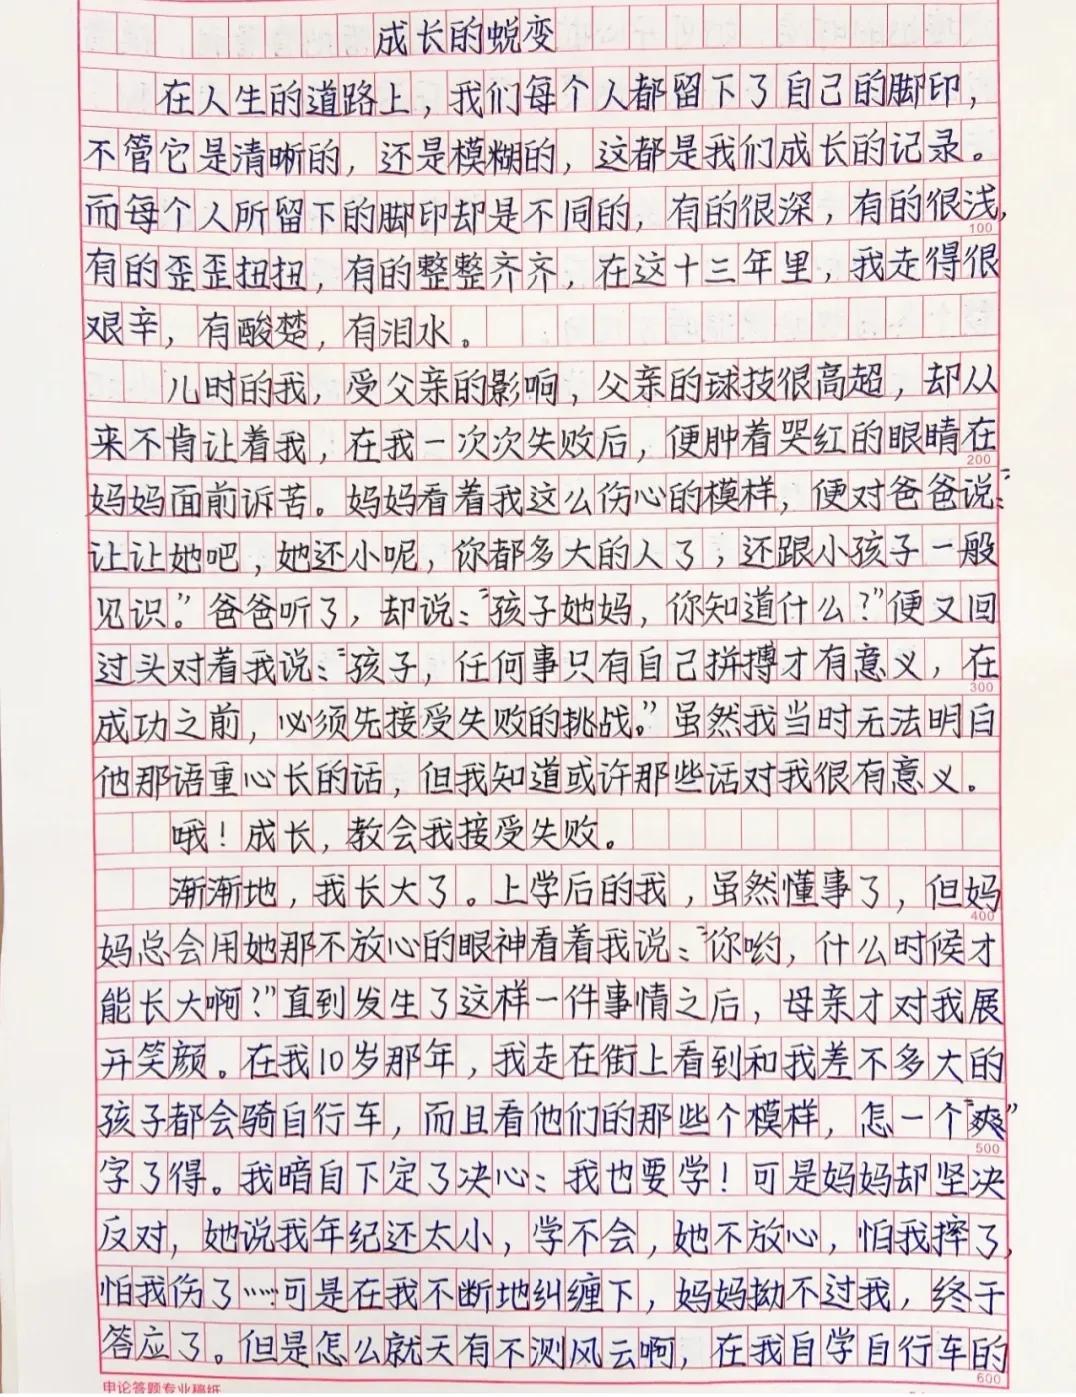 成长的蜕变
在人生的道路上，我们每个人都留下了自己的脚印，
不管它是清晰的，还是模糊的，这都是我们成长的记录。
而每个人所留下的脚印却是不同的，有的很深，有的很浅，
100
有的歪歪扭扭，有的整整齐齐，在这十三年里，我走得很
艰辛，有酸楚，有泪水。
儿时的我，受父亲的影响，父亲的球技很高超，却从
来不肯让着我，在我一次次失败后，便肿着哭红的眼睛在
200
妈妈面前诉苦。妈妈看着我这么伤心的模样，便对爸爸说：“
让让她吧，她还小呢，你都多大的人了，还跟小孩子一般
见识。”爸爸听了，却说：“孩子她妈，你知道什么？”便又回
过头对着我说：“孩子，任何事只有自己拼搏才有意义，在
300
成功之前，必须先接受失败的挑战。”虽然我当时无法明白
他那语重心长的话，但我知道或许那些话对我很有意义。
哦！成长，教会我接受失败。
渐渐地，我长大了。上学后的我，虽然懂事了，但妈
400
妈总会用她那不放心的眼神看着我说：“你哟，什么时候才
能长大啊？”直到发生了这样一件事情之后，母亲才对我展
开笑颜。在我10岁那年，我走在街上看到和我差不多大的
孩子都会骑自行车，而且看他们的那些个模样，怎一个“爽”
500
字了得。我暗自下定了决心：我也要学！可是妈妈却坚决
反对，她说我年纪还太小，学不会，她不放心，怕我摔了，
怕我伤了……可是在我不断地纠缠下，妈妈拗不过我，终于
答应了。但是怎么就天有不测风云啊，在我自学自行车的
600
申论答题专业稿纸